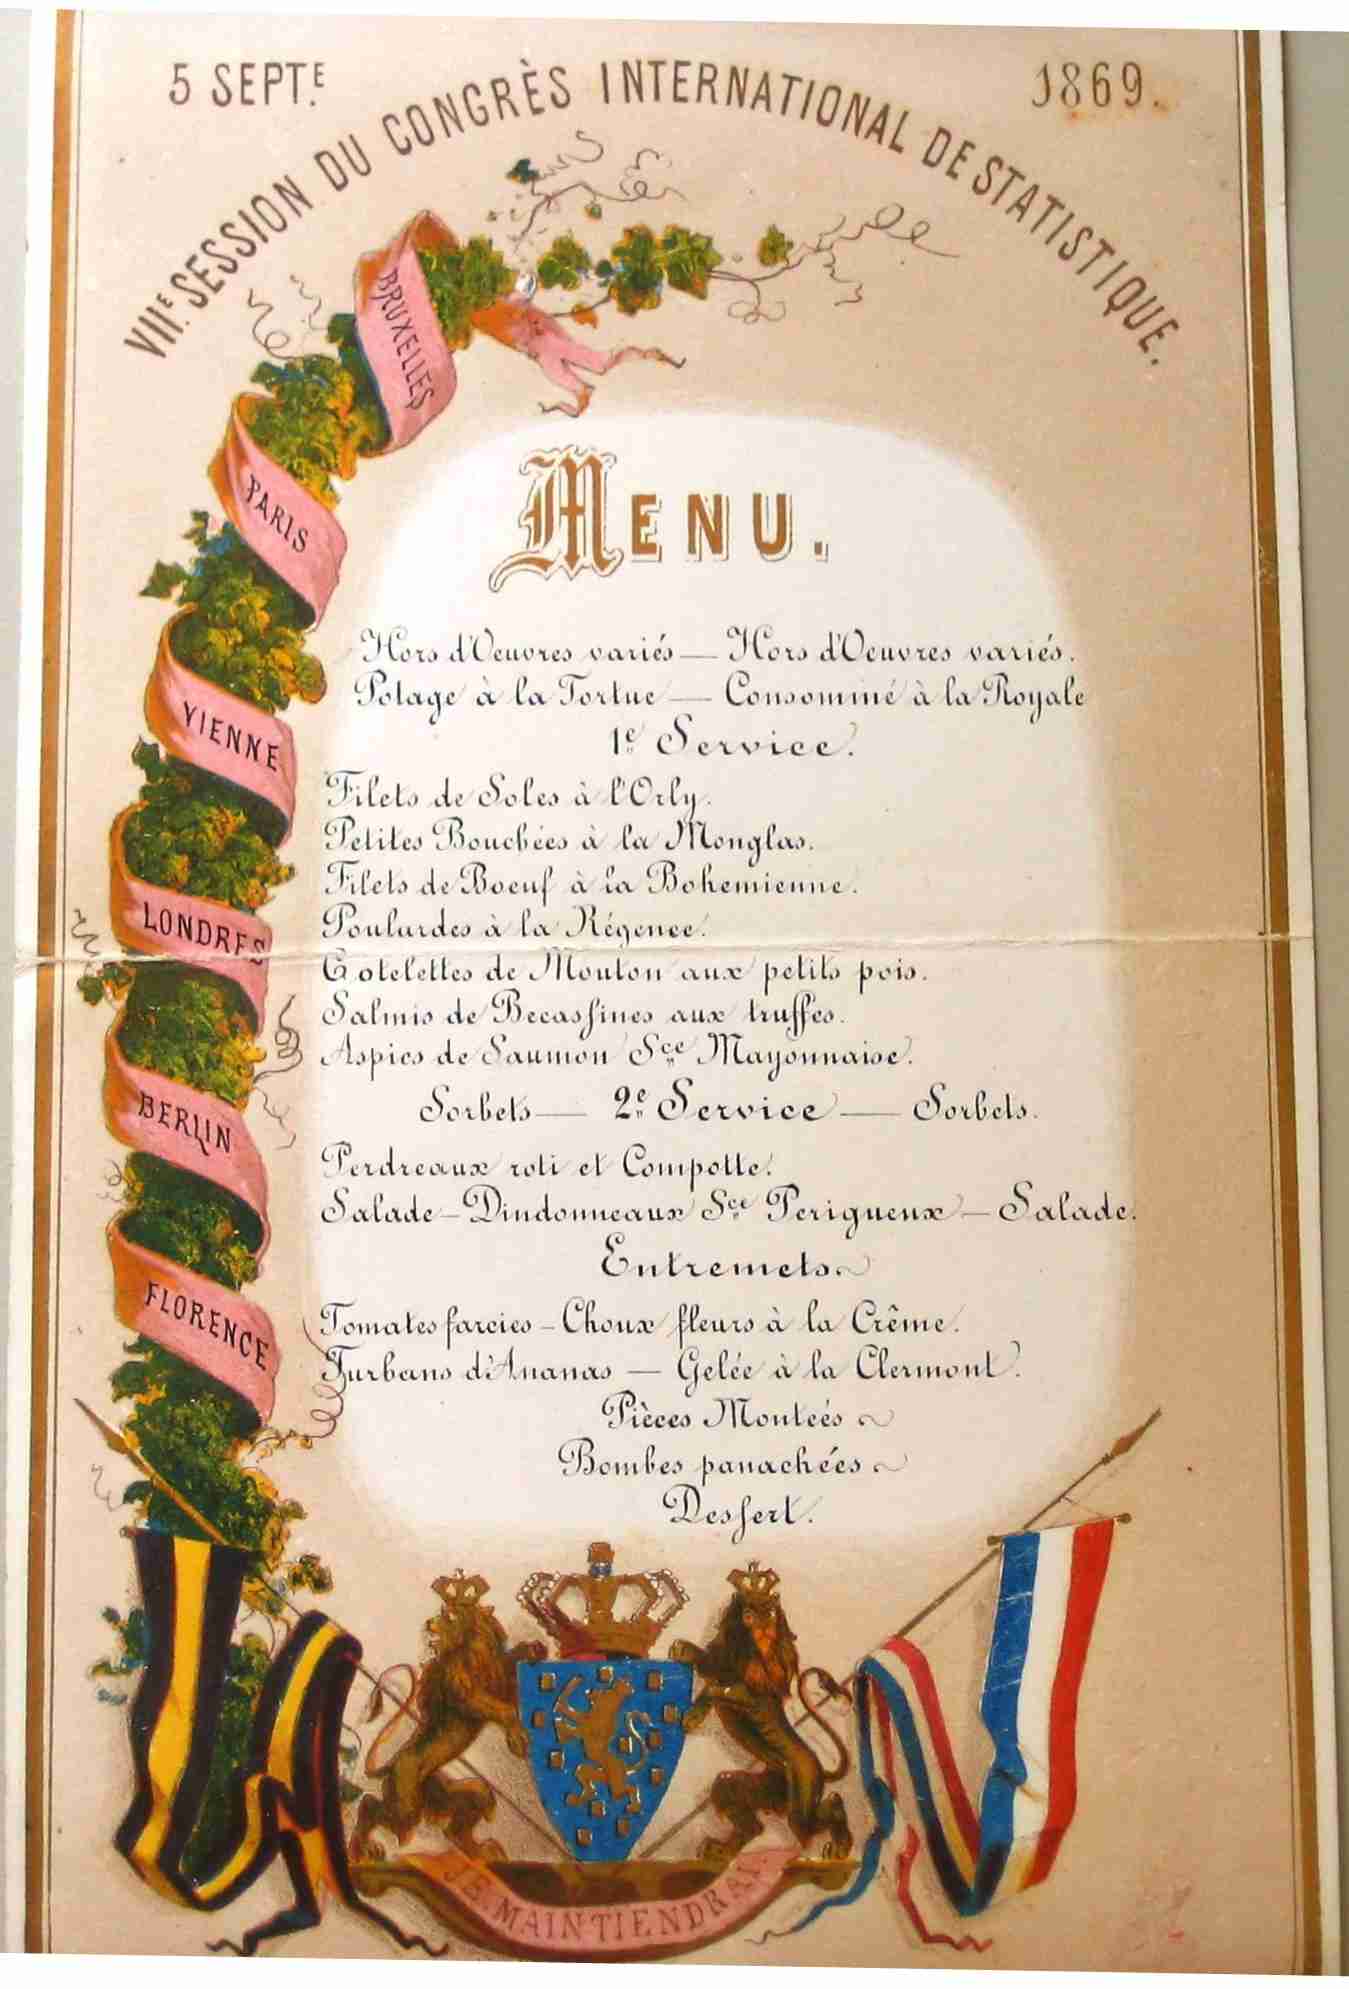 5 SEPT.E 1869.
VIIE. SESSION DU CONGRÈS INTERNATIONAL DE STATISTIQUE.
BRUXELLES
PARIS
VIENNE
LONDRES
BERLIN
FLORENCE
MENU.
Hors d'Oeuvres variés — Hors d'Oeuvres variés.
Potage à la Tortue — Consommé à la Royale
1e Service.
Filets de Soles à l'Orly.
Petites Bouchées à la Monglas.
Filets de Boeuf à la Bohemienne.
Poulardes à la Régence.
Cotelettes de Mouton aux petits pois.
Salmis de Becassines aux truffes.
Aspics de Saumon Sce Mayonnaise.
Sorbets — 2e Service — Sorbets.
Perdreaux roti et Compotte.
Salade — Dindonneaux Sce Perigueux — Salade.
Entremets
Tomates farcies — Choux fleurs à la Crême.
Turbans d'Ananas — Gelée à la Clermont.
Pièces Monteés
Bombes panachées
Dessert.
JE MAINTIENDRAI.